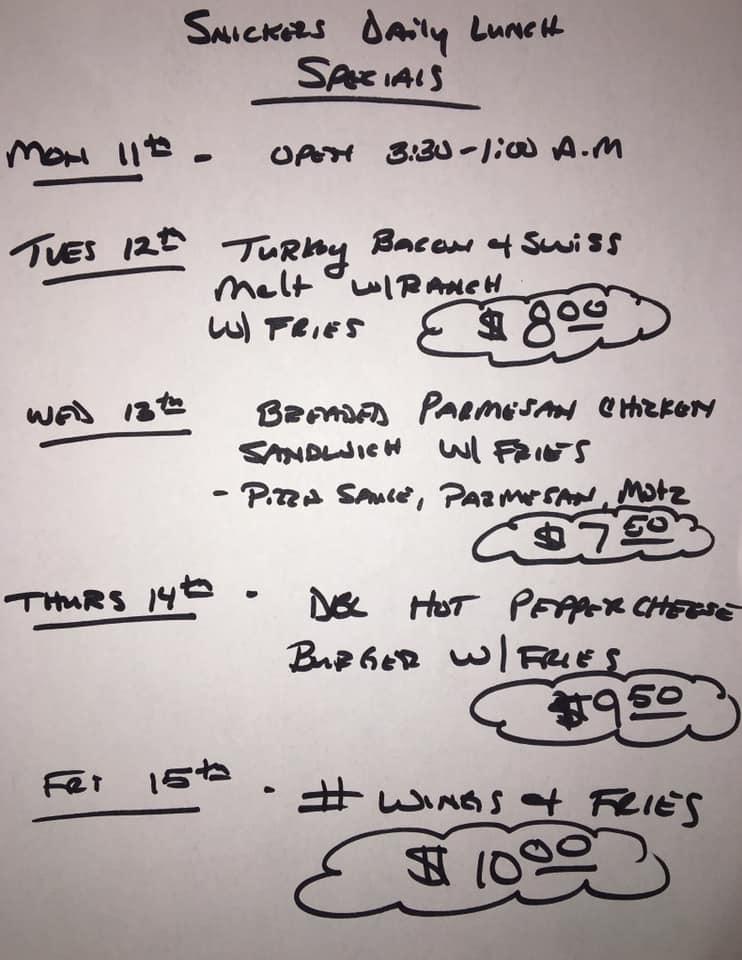 SNICKERS DAILY LUNCH
SPECIALS
MON 11th - OPEN 3:30-1:00 A.M
TUES 12th TURKEY BACON & SWISS
MELT W/RANCH
W/ FRIES $8.00
WED 13th BREADED PARMESAN CHICKEN
SANDWICH W/ FRIES
- PIZZA SAUCE, PARMESAN, MOTZ
$7.50
THURS 14th - DBL HOT PEPPER CHEESE
BURGER W/ FRIES
$9.50
FRI 15th - # WINGS & FRIES
$10.00